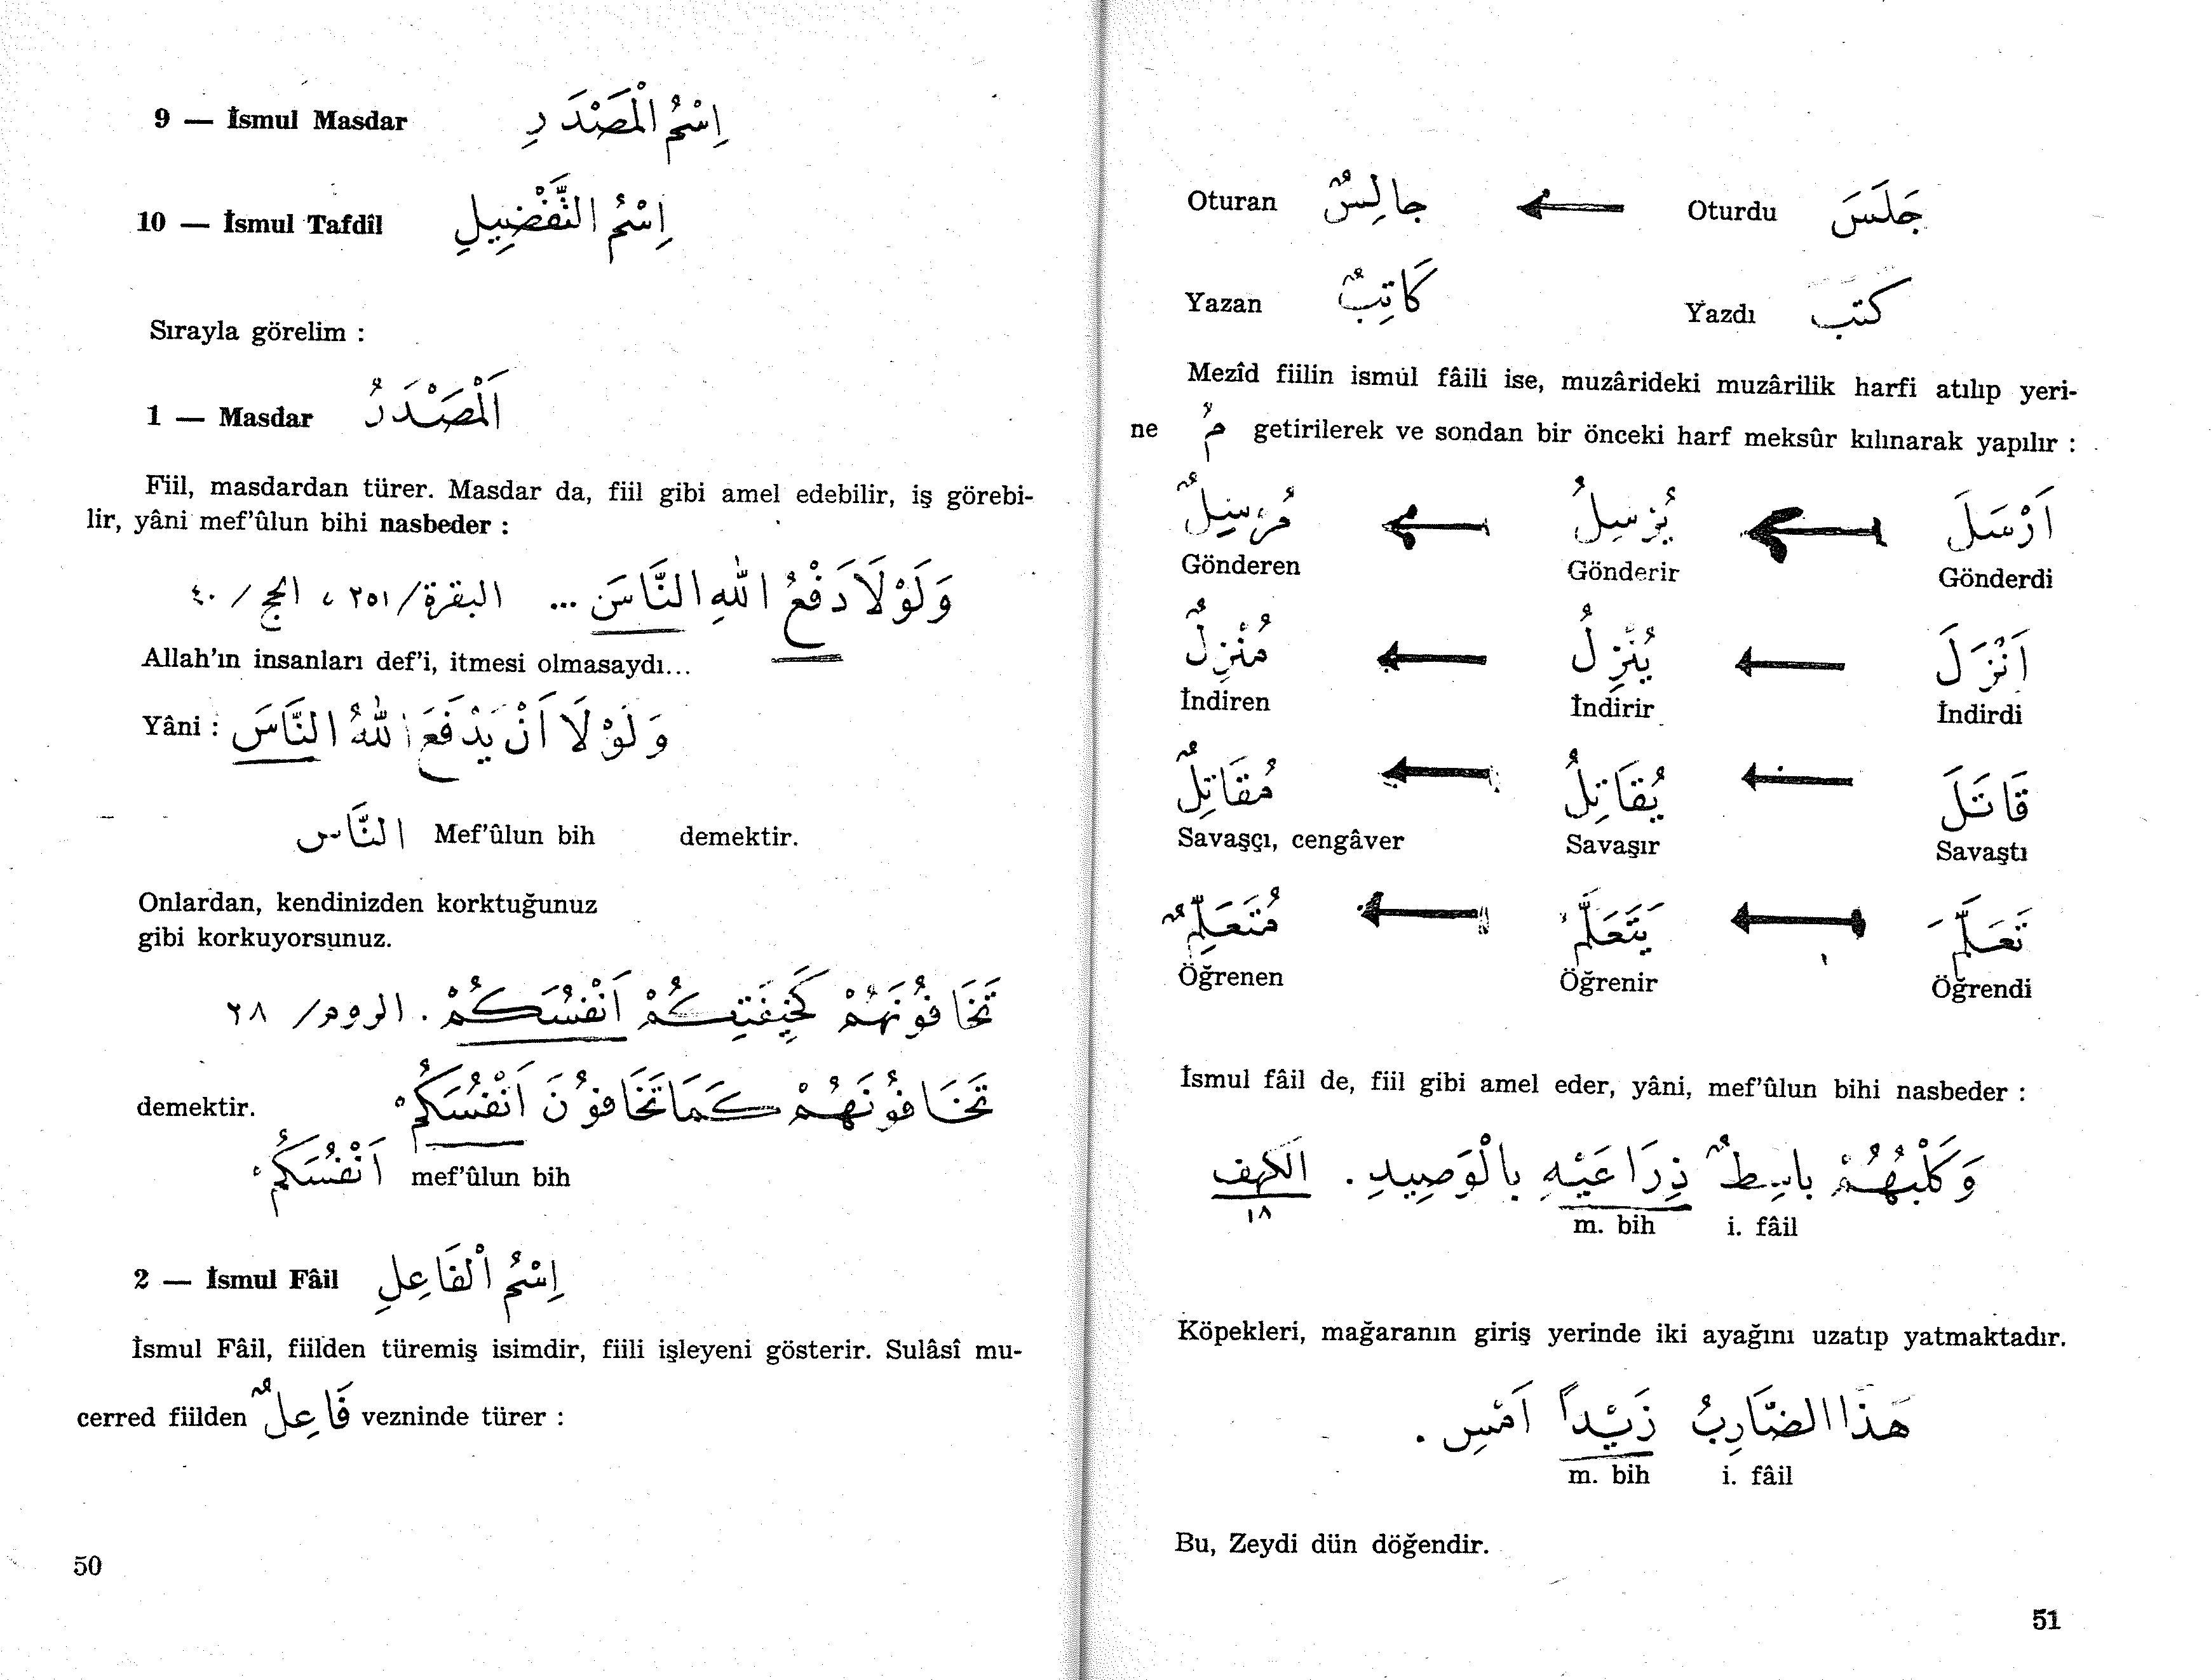 9 — İsmul Masdar اِسْمُ الْمَصْدَرِ
10 — İsmul Tafdîl اِسْمُ التَّفْضِيلِ
Sırayla görelim :
1 — Masdar اَلْمَصْدَرُ
Fiil, masdardan türer. Masdar da, fiil gibi amel edebilir, iş görebi-
lir, yâni mef'ûlun bihi nasbeder :
وَلَوْلَا دَفْعُ اللهِ النَّاسَ ... البقرة/٢٥١ ، الحج/٤٠
Allah'ın insanları def'i, itmesi olmasaydı...
Yâni : وَلَوْلَا اَنْ يَدْفَعَ اللهُ النَّاسَ
النَّاس Mef'ûlun bih demektir.
Onlardan, kendinizden korktuğunuz
gibi korkuyorsunuz.
تَخَافُونَهُمْ كَخِيفَتِكُمْ اَنْفُسَكُمْ . الروم/ ٢٨
demektir. تَخَافُونَهُمْ كَمَا تَخَافُونَ اَنْفُسَكُمْ
اَنْفُسَكُمْ mef'ûlun bih
2 — İsmul Fâil اِسْمُ الْفَاعِلِ
İsmul Fâil, fiilden türemiş isimdir, fiili işleyeni gösterir. Sulâsî mu-
cerred fiilden فَاعِلٌ vezninde türer :
50
Oturan جالِسٌ Oturdu جَلَسَ
Yazan كَاتِبٌ Yazdı كتب
Mezîd fiilin ismul fâili ise, muzârideki muzârilik harfi atılıp yeri-
ne مُ getirilerek ve sondan bir önceki harf meksûr kılınarak yapılır :
مُرْسِلٌ يُرْسِلُ اَرْسَلَ
Gönderen Gönderir Gönderdi
مُنْزِلٌ يُنْزِلُ اَنْزَلَ
İndiren İndirir İndirdi
مُقَاتِلٌ يُقَاتِلُ قَاتَلَ
Savaşçı, cengâver Savaşır Savaştı
مُتَعَلِّمٌ يَتَعَلَّمُ تَعَلَّمَ
Öğrenen Öğrenir Öğrendi
İsmul fâil de, fiil gibi amel eder, yâni, mef'ûlun bihi nasbeder :
وَكَلْبُهُمْ باسِطٌ ذِرَاعَيْهِ بالْوَصِيدِ . الكهف
١٨
m. bih i. fâil
Köpekleri, mağaranın giriş yerinde iki ayağını uzatıp yatmaktadır.
هَذَا الضَّارِبُ زَيْداً اَمْسِ .
m. bih i. fâil
Bu, Zeydi dün döğendir.
51